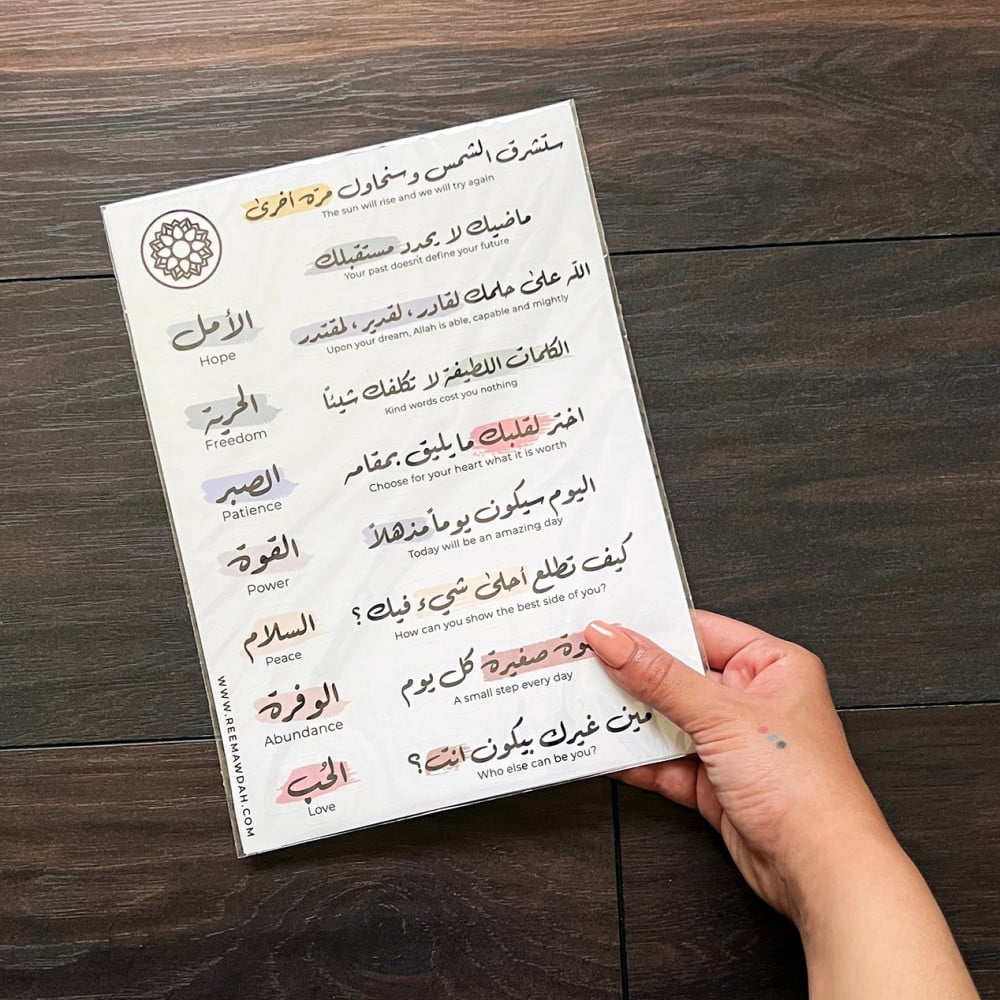 ستشرق الشمس وسنحاول مرّة أخرىٰ
The sun will rise and we will try again
ماضيك لا يحدد مستقبلك
Your past doesn't define your future
الله علىٰ حلمك لقادر، لقدير، لمقتدر
Upon your dream, Allah is able, capable and mightly
الكلمات اللطيفة لا تكلفك شيئاً
Kind words cost you nothing
اختر لقلبك ما يليق بمقامه
Choose for your heart what it is worth
اليوم سيكون يوماً مذهلاً
Today will be an amazing day
كيف تطلع أحلىٰ شيء فيك ؟
How can you show the best side of you?
صغيرة كل يوم
A small step every day
مين غيرك بيكون انت؟
Who else can be you?
الأمل
Hope
الحرية
Freedom
الصبر
Patience
القوة
Power
السلام
Peace
الوفرة
Abundance
الحُب
Love
WWW.REEMAWDAH.COM